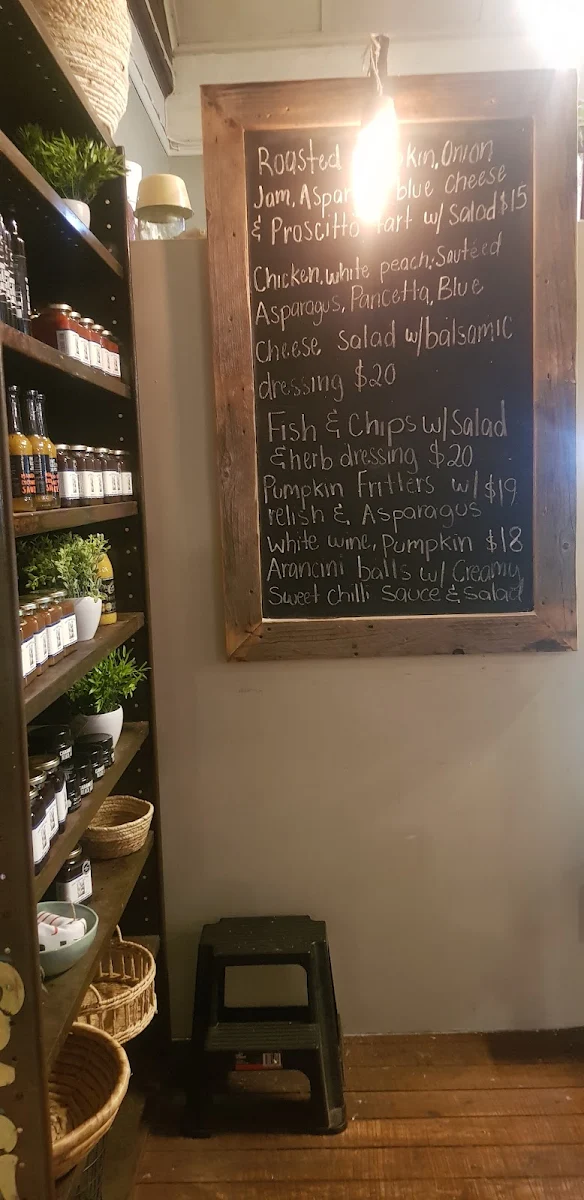 Roasted kin, Onion
Jam, Aspar blue cheese
& Proscitto tart w/ Salad $15
Chicken, white peach, Sautéed
Asparagus, Pancetta, Blue
Cheese Salad w/balsamic
dressing $20
Fish & Chips w/Salad
& herb dressing $20
Pumpkin Fritters w/ $19
relish & Asparagus
white wine, Pumpkin $18
Arancini balls w/ Creamy
Sweet chilli Sauce & Salad